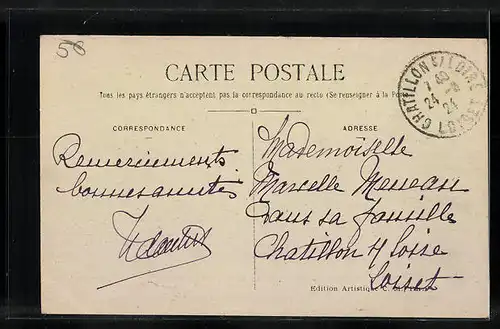 58
CARTE POSTALE
Tous les pays étrangers n'acceptent pas la correspondance au recto (Se renseigner à la Poste)
CORRESPONDANCE
ADRESSE
CHATILLON S/LOIRE
24 -8
24
LOIRET
Remerciements
bonnes amitiés
Mademoiselle
Marcelle Meneau
Dans sa famille
Chatillon s/ Loire
Loiret
Edition Artistique